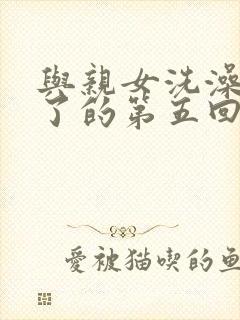 與親女洗澡
了的第五回
愛被猫喫的魚